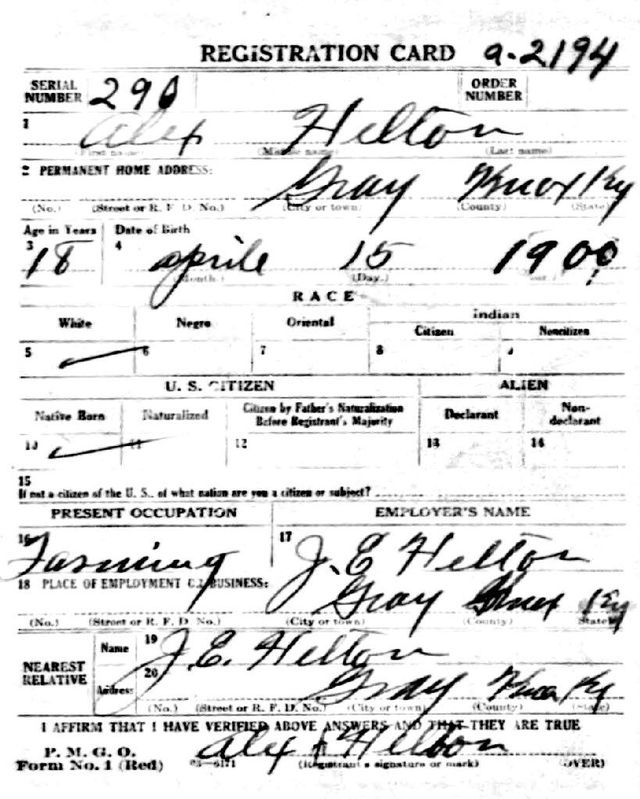 REGISTRATION CARD a-2194
SERIAL NUMBER 290 ORDER NUMBER
1 Alex Helton
(First name) (Middle name) (Last name)
2 PERMANENT HOME ADDRESS:
Gray Knox Ky
(No.) (Street or R. F. D. No.) (City or town) (County) (State)
Age in Years Date of Birth
3 18 4 aprile 15 1900
(Month.) (Day.)
RACE
White Negro Oriental Indian
Citizen Noncitizen
5 6 7 8
U. S. CITIZEN ALIEN
Native Born Naturalized Citizen by Father's Naturalization Before Registrant's Majority Declarant Non-declarant
10 11 12 13 14
15
If not a citizen of the U. S., of what nation are you a citizen or subject?
PRESENT OCCUPATION EMPLOYER'S NAME
16 Farming 17 J. E Helton
18 PLACE OF EMPLOYMENT OR BUSINESS:
Gray Knox Ky
(No.) (Street or R. F. D. No.) (City or town) (County) (State)
NEAREST RELATIVE Name 19 J. E. Helton
Address: 20 Gray Knox Ky
(No.) (Street or R. F. D. No.) (City or town) (County) (State)
I AFFIRM THAT I HAVE VERIFIED ABOVE ANSWERS AND THAT THEY ARE TRUE
P. M. G. O.
Form No. 1 (Red) 03-6171 Alex Helton
(Registrant's signature or mark) (OVER)